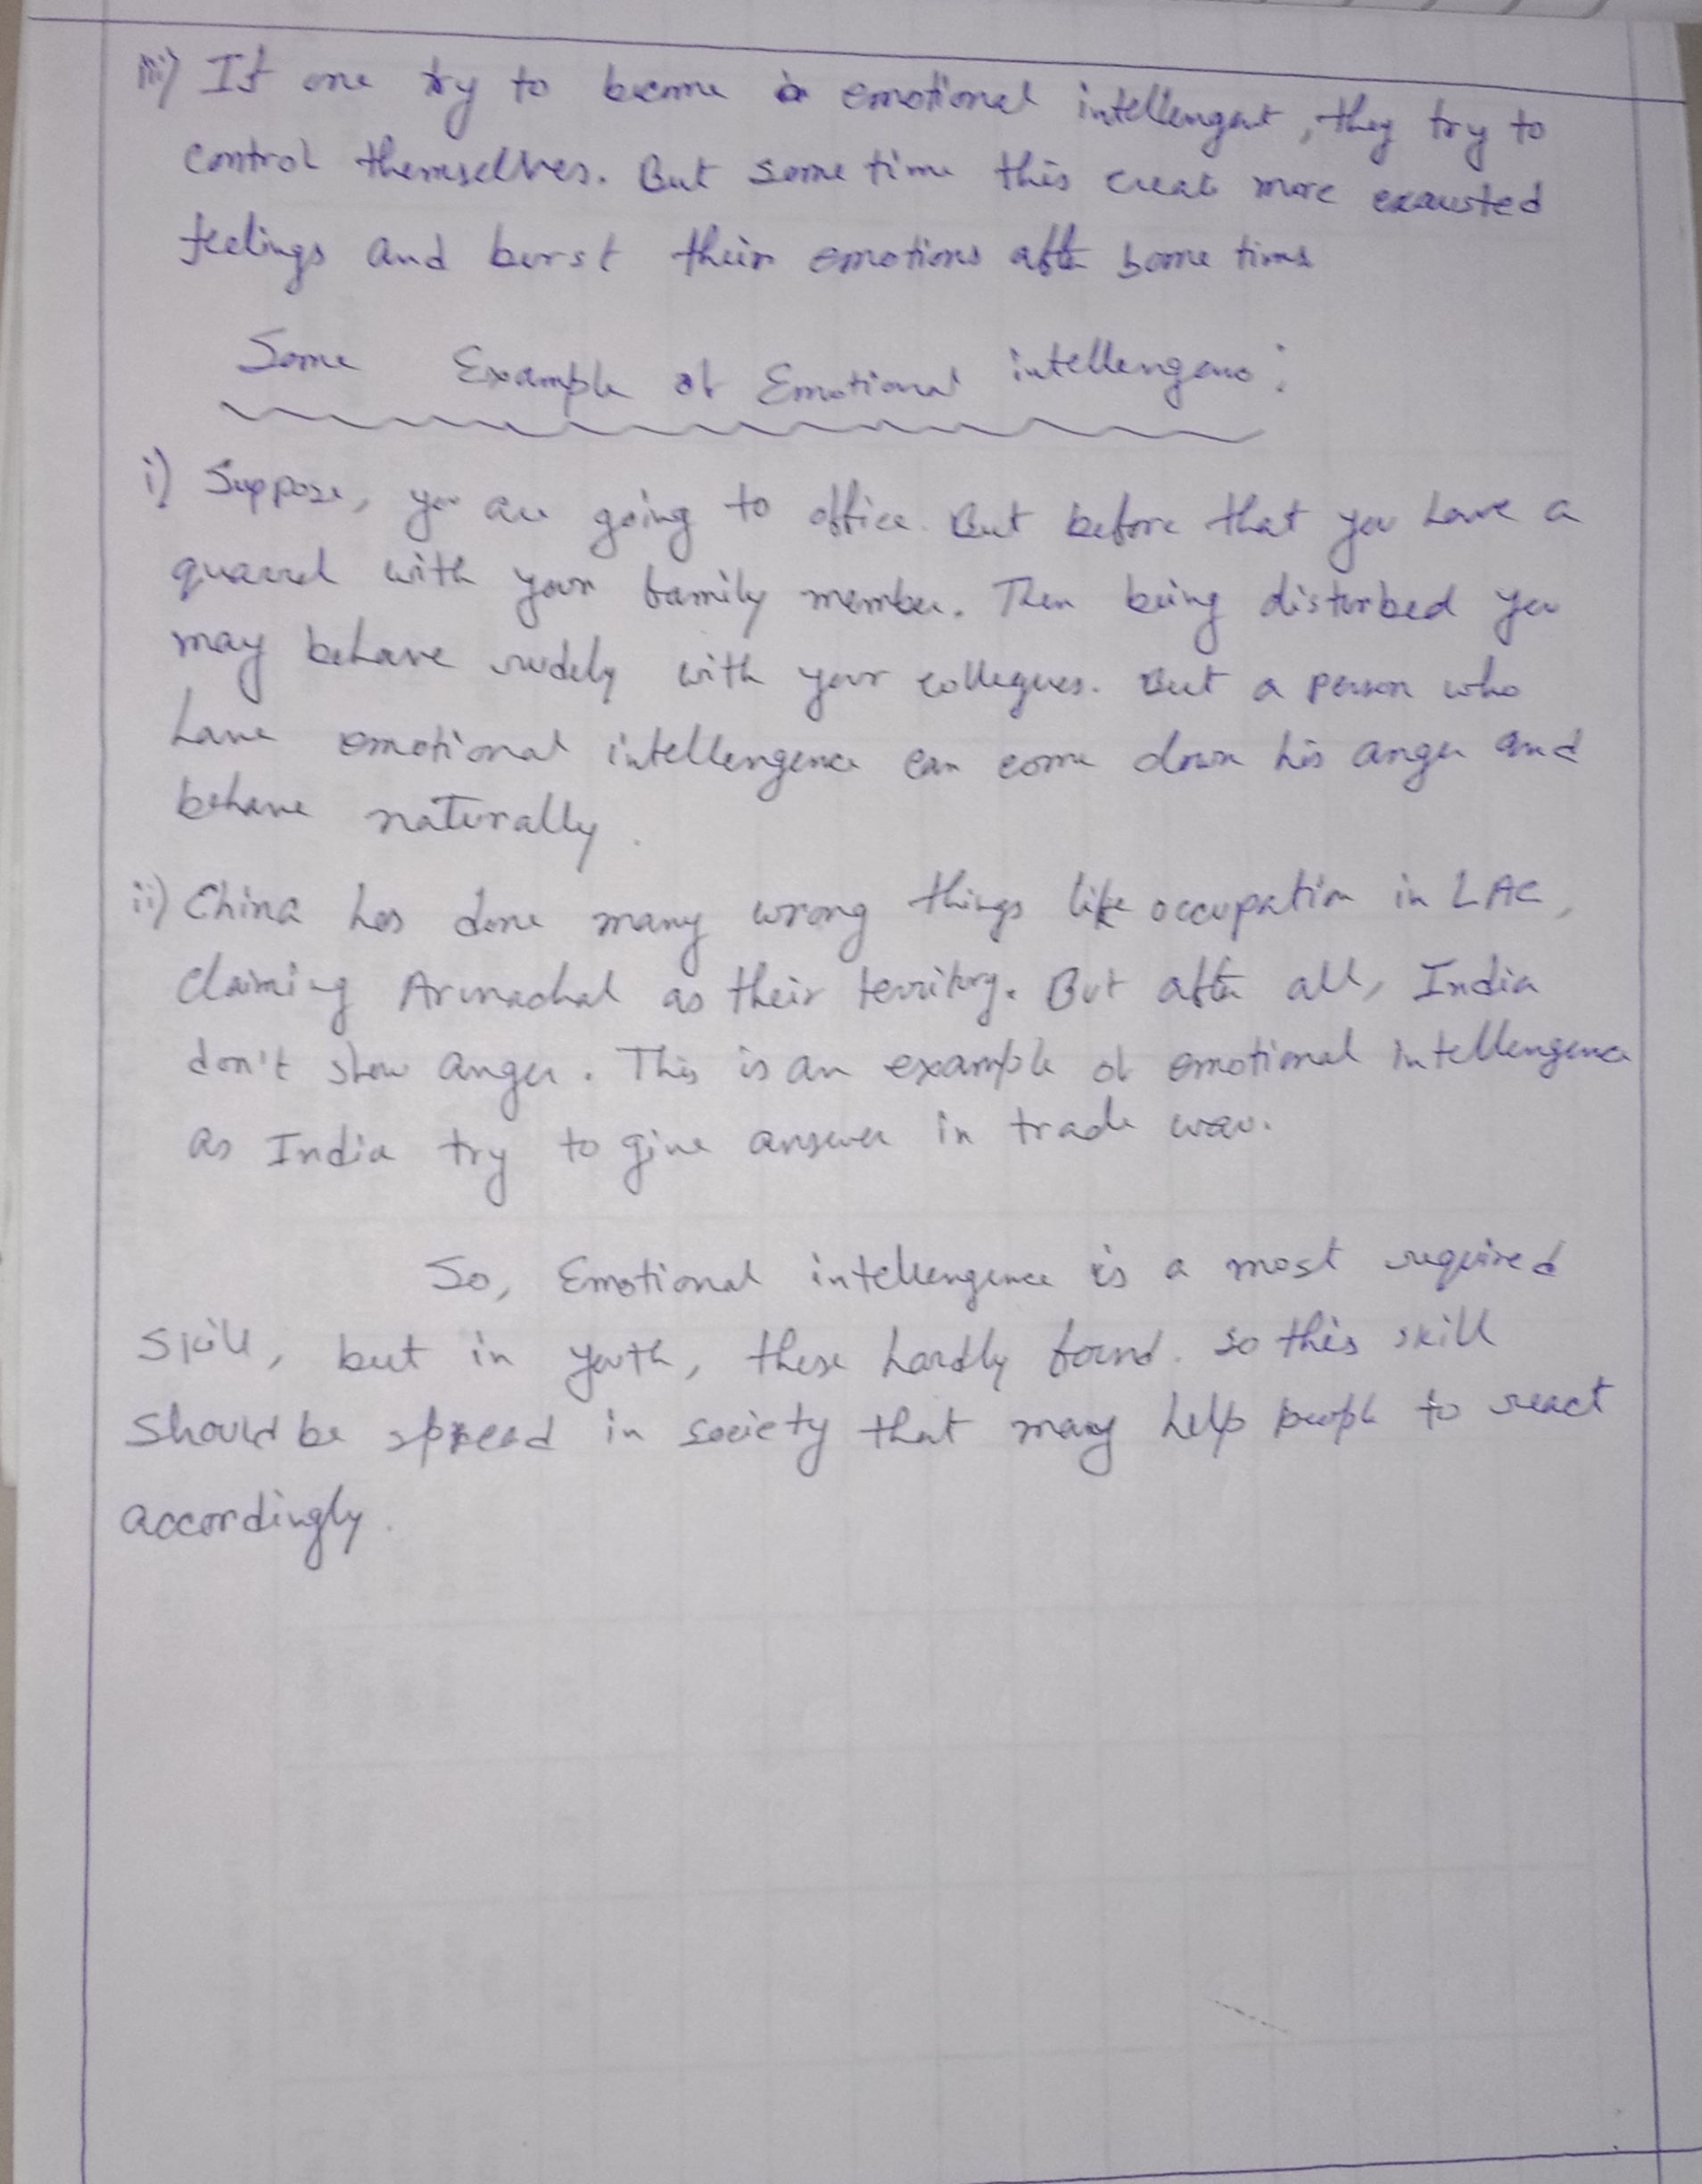 iii) If one try to become a emotional intellengent, they try to
control themselves. But some time this creat more exausted
feelings and burst their emotions after some times
Some Example of Emotional intellengenc:
i) Suppose, you are going to office. But before that you have a
quarrel with your family member. Then being disturbed you
may behave rudely with your collegues. But a person who
have emotional intellengence can come down his anger and
behave naturally.
ii) China has done many wrong things like occupation in LAC,
claiming Arunachal as their territory. But after all, India
don't show anger. This is an example of emotional intellengence
as India try to give answer in trade war.
So, Emotional intellengence is a most required
skill, but in youth, these hardly found. so this skill
should be spread in society that may help people to react
accordingly.